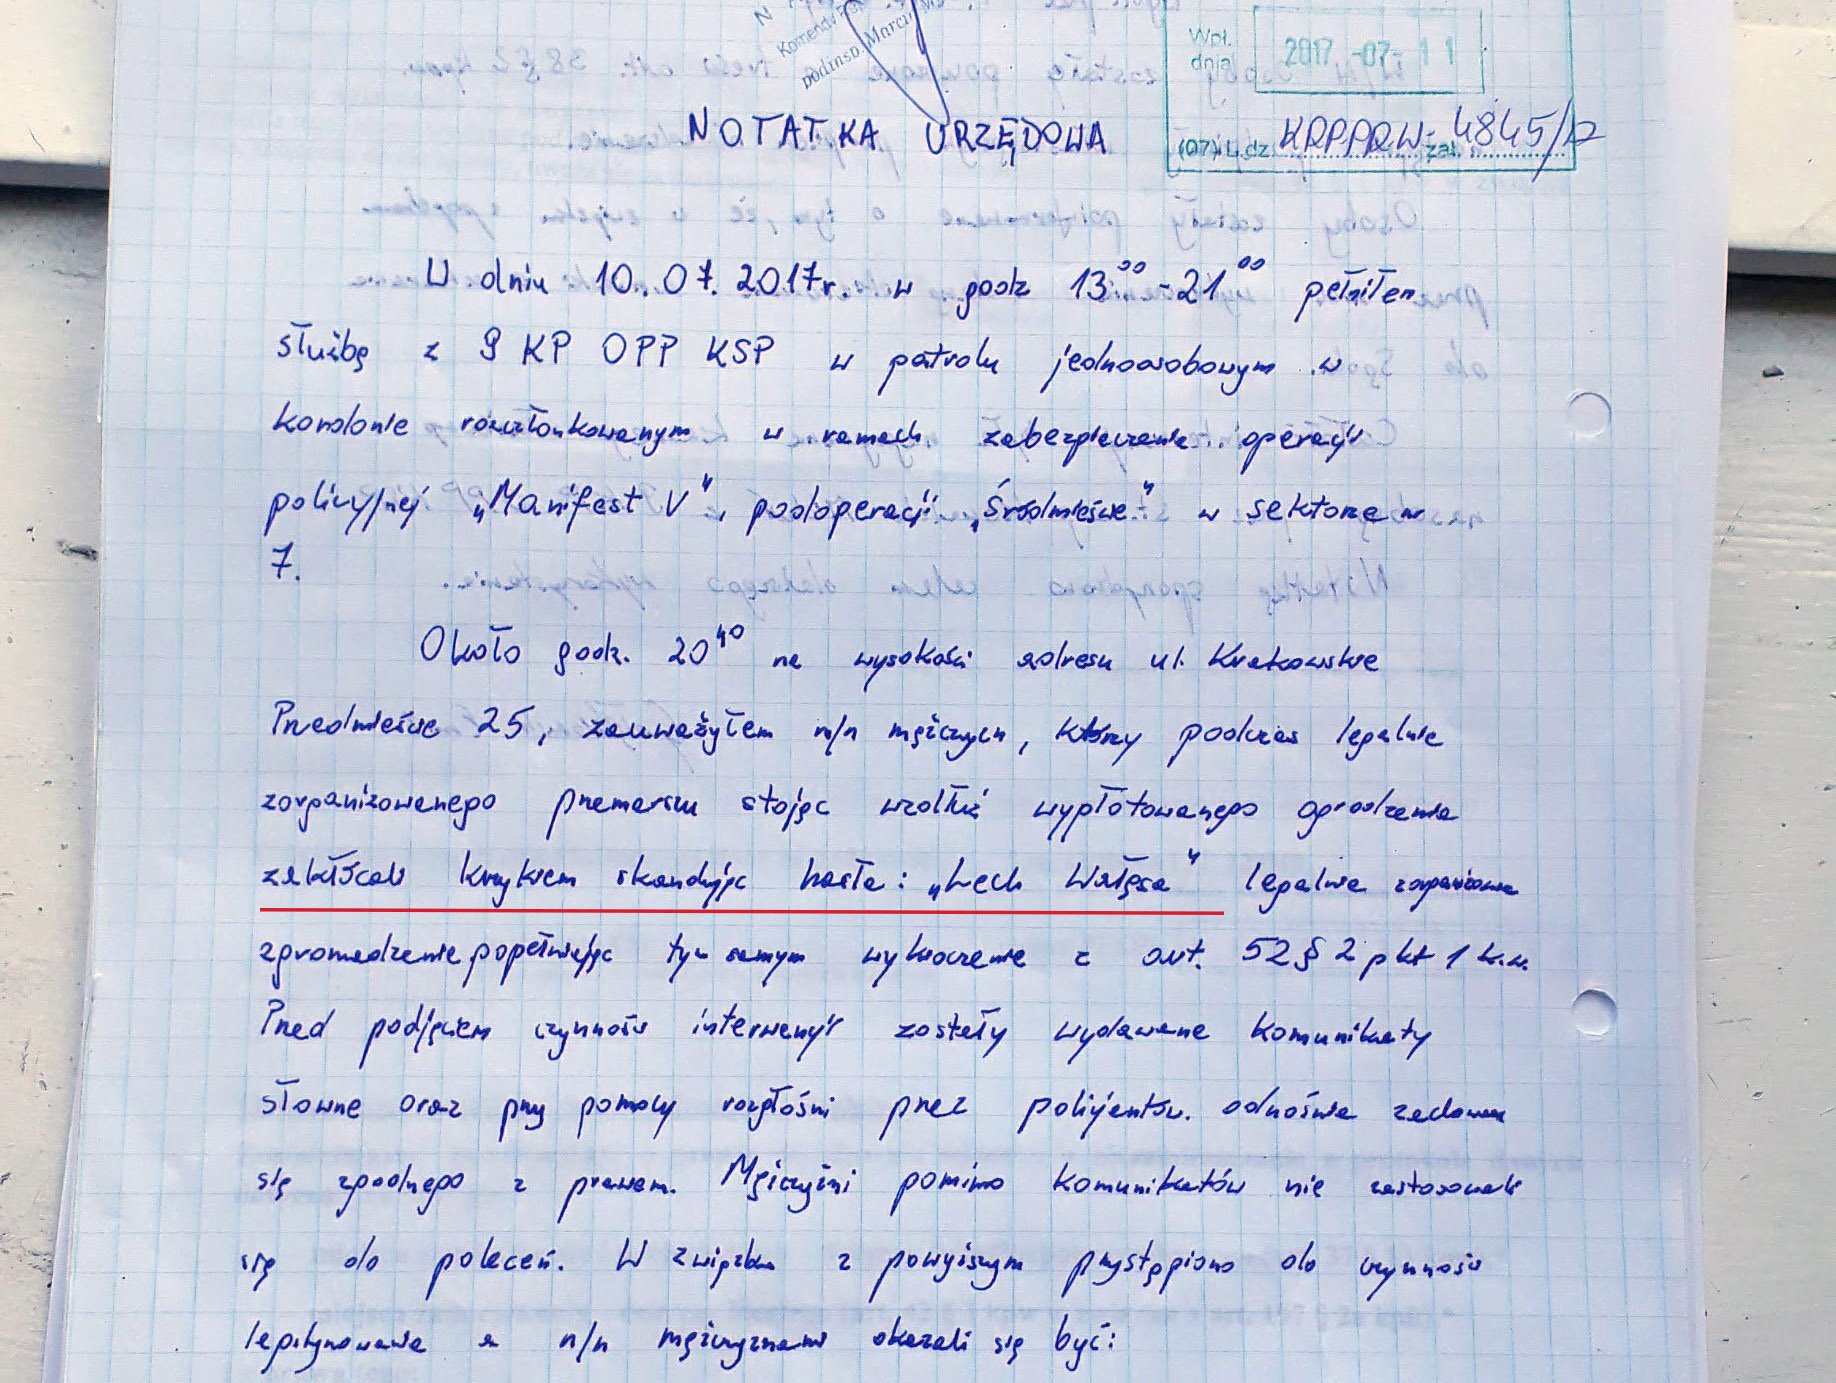 Komendy
podinsp. Marcin
Wpł.
dnia 2017 -07- 11
(07) L.dz. zał. 4845/17
NOTATKA URZĘDOWA
W dniu 10.07.2017r. w godz 13⁰⁰-21⁰⁰ pełniłem
służbę z 9 KP OPP KSP w patrolu jednoosobowym w
kordonie rozczłonkowanym w ramach zabezpieczenia operacji
policyjnej „Manifest V", podoperacji „Śródmieście" w sektorze nr
7.
Około godz. 20⁴⁰ na wysokości adresu ul. Krakowskie
Przedmieście 25, zauważyłem n/n mężczyzn, którzy podczas legalnie
zorganizowanego przemarszu stojąc wzdłuż wypłotowanego ogrodzenia
zakłócali krzykiem skandując hasła: „Lech Wałęsa" legalnie zorganizowane
zgromadzenie popełniając tym samym wykroczenie z art. 52 § 2 pkt 1 k.w.
Przed podjęciem czynności interwencji zostały wydawane komunikaty
słowne oraz przy pomocy rozgłośni przez policjantów. odnośnie zachowania
się zgodnego z prawem. Mężczyźni pomimo komunikatów nie zastosowali
się do poleceń. W związku z powyższym przystąpiono do czynności
legitymowania a n/n mężczyznami okazali się być: